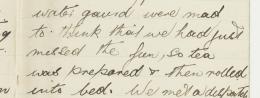 water gaurd were mad
to think that we had just
missed the fun, so tea
was prepared & then rolled
into bed. We met a despatch